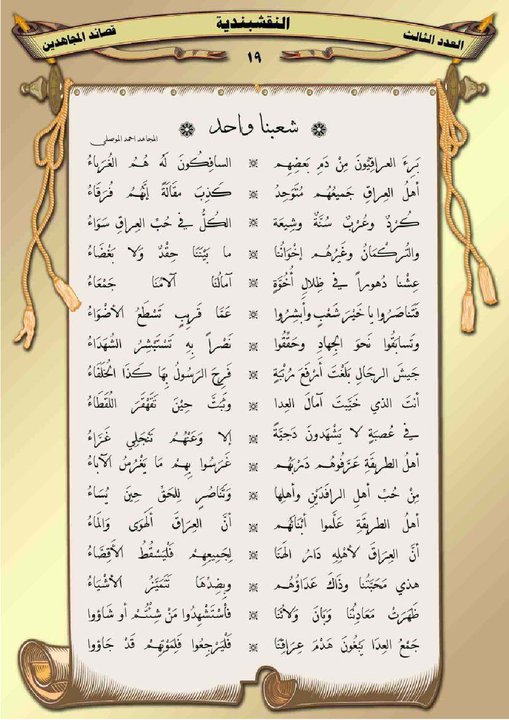 العدد الثالث
النقشبندية
قصائد المجاهدين
١٩
شعبنا واحد
المجاهد احمد الموصلي
بَرِءَ العراقيُّونَ مِنْ دَمِ بَعضِهِم ۞ السافِكُونَ لَهُ هُمُ الغُرَباءُ
أهلُ العِراقِ جَميعُهُم مُتَوَحِدُ ۞ كَذِبَ مَقالَةُ إنَّهُم فُرَقَاءُ
كُردٌ وعُربٌ سُنَّةٌ وشِيعَة ۞ الكُلُّ في حُبْ العِراقِ سَوَاءُ
والتُركمَانُ وغَيرُهُم إخوَانُنا ۞ ما بَيْنَنَا حِقْدٌ وَلا بَغْضَاءُ
عِشْنا دُهوراً في ظِلالِ أُخُوَّةٍ ۞ آمَالُنا آلامُنَا جَمْعَاءُ
فَتَناصَرُوا يا خَيرَ شَعْبٍ وأَبشِرُوا ۞ عَمَّا قَرِيبٍ تَسْطَعُ الأضْوَاءُ
وتَسابَقُوا نَحوَ الجِهادِ وحَقِّقُوا ۞ نَصْراً بِهِ تَسْتَبْشِرُ الشُهَدَاءُ
جَيشَ الرِجالِ بَلَغْتَ أرْفَعَ رُتْبَةٍ ۞ فَرِحَ الرَسُولُ بِهَا كَذَا الخُلَفَاءُ
أنتَ الذي خَيَّبتَ آمَالَ العِدا ۞ وثَبَتَّ حِيْنَ تَقَهْقَرَ اللُقَطَاءُ
في عُصبَةٍ لا يَشْهَدُونَ دَجيَّةً ۞ إلا وَعَنْهُم تَنْجَلِي غَرَّاءُ
أهلُ الطَريقَةِ عَرَفُوهُم دَرْبَهُم ۞ غَرَسُوا بِهِمْ مَا يَغْرُسُ الآباءُ
مِنْ حُبْ أهلِ الرافَدَيْنِ وأهلِها ۞ وتَنَاصُرٍ لِلحَقِ حِينَ يُسَاءُ
أهلُ الطَريقَةِ عَلَّمُوا أبْنَائَهُم ۞ أنَّ العِرَاقَ الهَوَى والمَاءُ
أنَّ العِرَاقَ لأهْلِهِ دَارُ الهَنَا ۞ لِجَمِيعِهِم فَلْيَسْقُطُ الأقصَاءُ
هذي مَحَبَّتُنا وذَاكَ عَدَاؤُهُم ۞ وبِضِدِهَا تَتَمَيَّزُ الأشْيَاءُ
طَهُرَتْ مَعادِنُنا وَبَانَ وَلائُنَا ۞ فَأسْتَشْهِدُوا مَنْ شِئْتُم أو شَاؤوا
جَمْعُ العِدَا يَبغُونَ هَدْمَ عِرَاقِنَا ۞ فَلْيَرْجِعُوا فَلِمَوْتِهِمْ قَدْ جَاؤوا